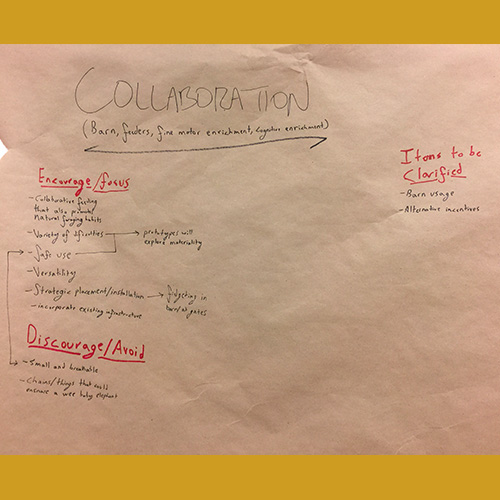 COLLABORATION
(Barn, feeders, fine motor enrichment, cognitive enrichment)
Encourage/focus
- Collaborative feeding
that also promotes
natural foraging habits
- Variety of dificulties
prototypes will
explore materiality
- Safe use
- Versatility
- Strategic placement/installation
fidgeting in
barn/at gates
- incorporate existing infrastructure
Discourage/Avoid
- Small and breakable
- Chains/things that could
ensnare a wee baby elephant
Items to be
Clarified
- Barn usage
- Alternative incentives